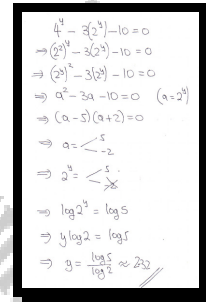 4^y - 3(2^y) - 10 = 0
⇒ (2²)^y - 3(2^y) - 10 = 0
⇒ (2^y)² - 3(2^y) - 10 = 0
⇒ a² - 3a - 10 = 0 (a = 2^y)
⇒ (a - 5)(a + 2) = 0
⇒ a = < 5
-2
⇒ 2^y = < 5
⇒ log 2^y = log 5
⇒ y log 2 = log 5
⇒ y = log 5 / log 2 ≈ 2.32